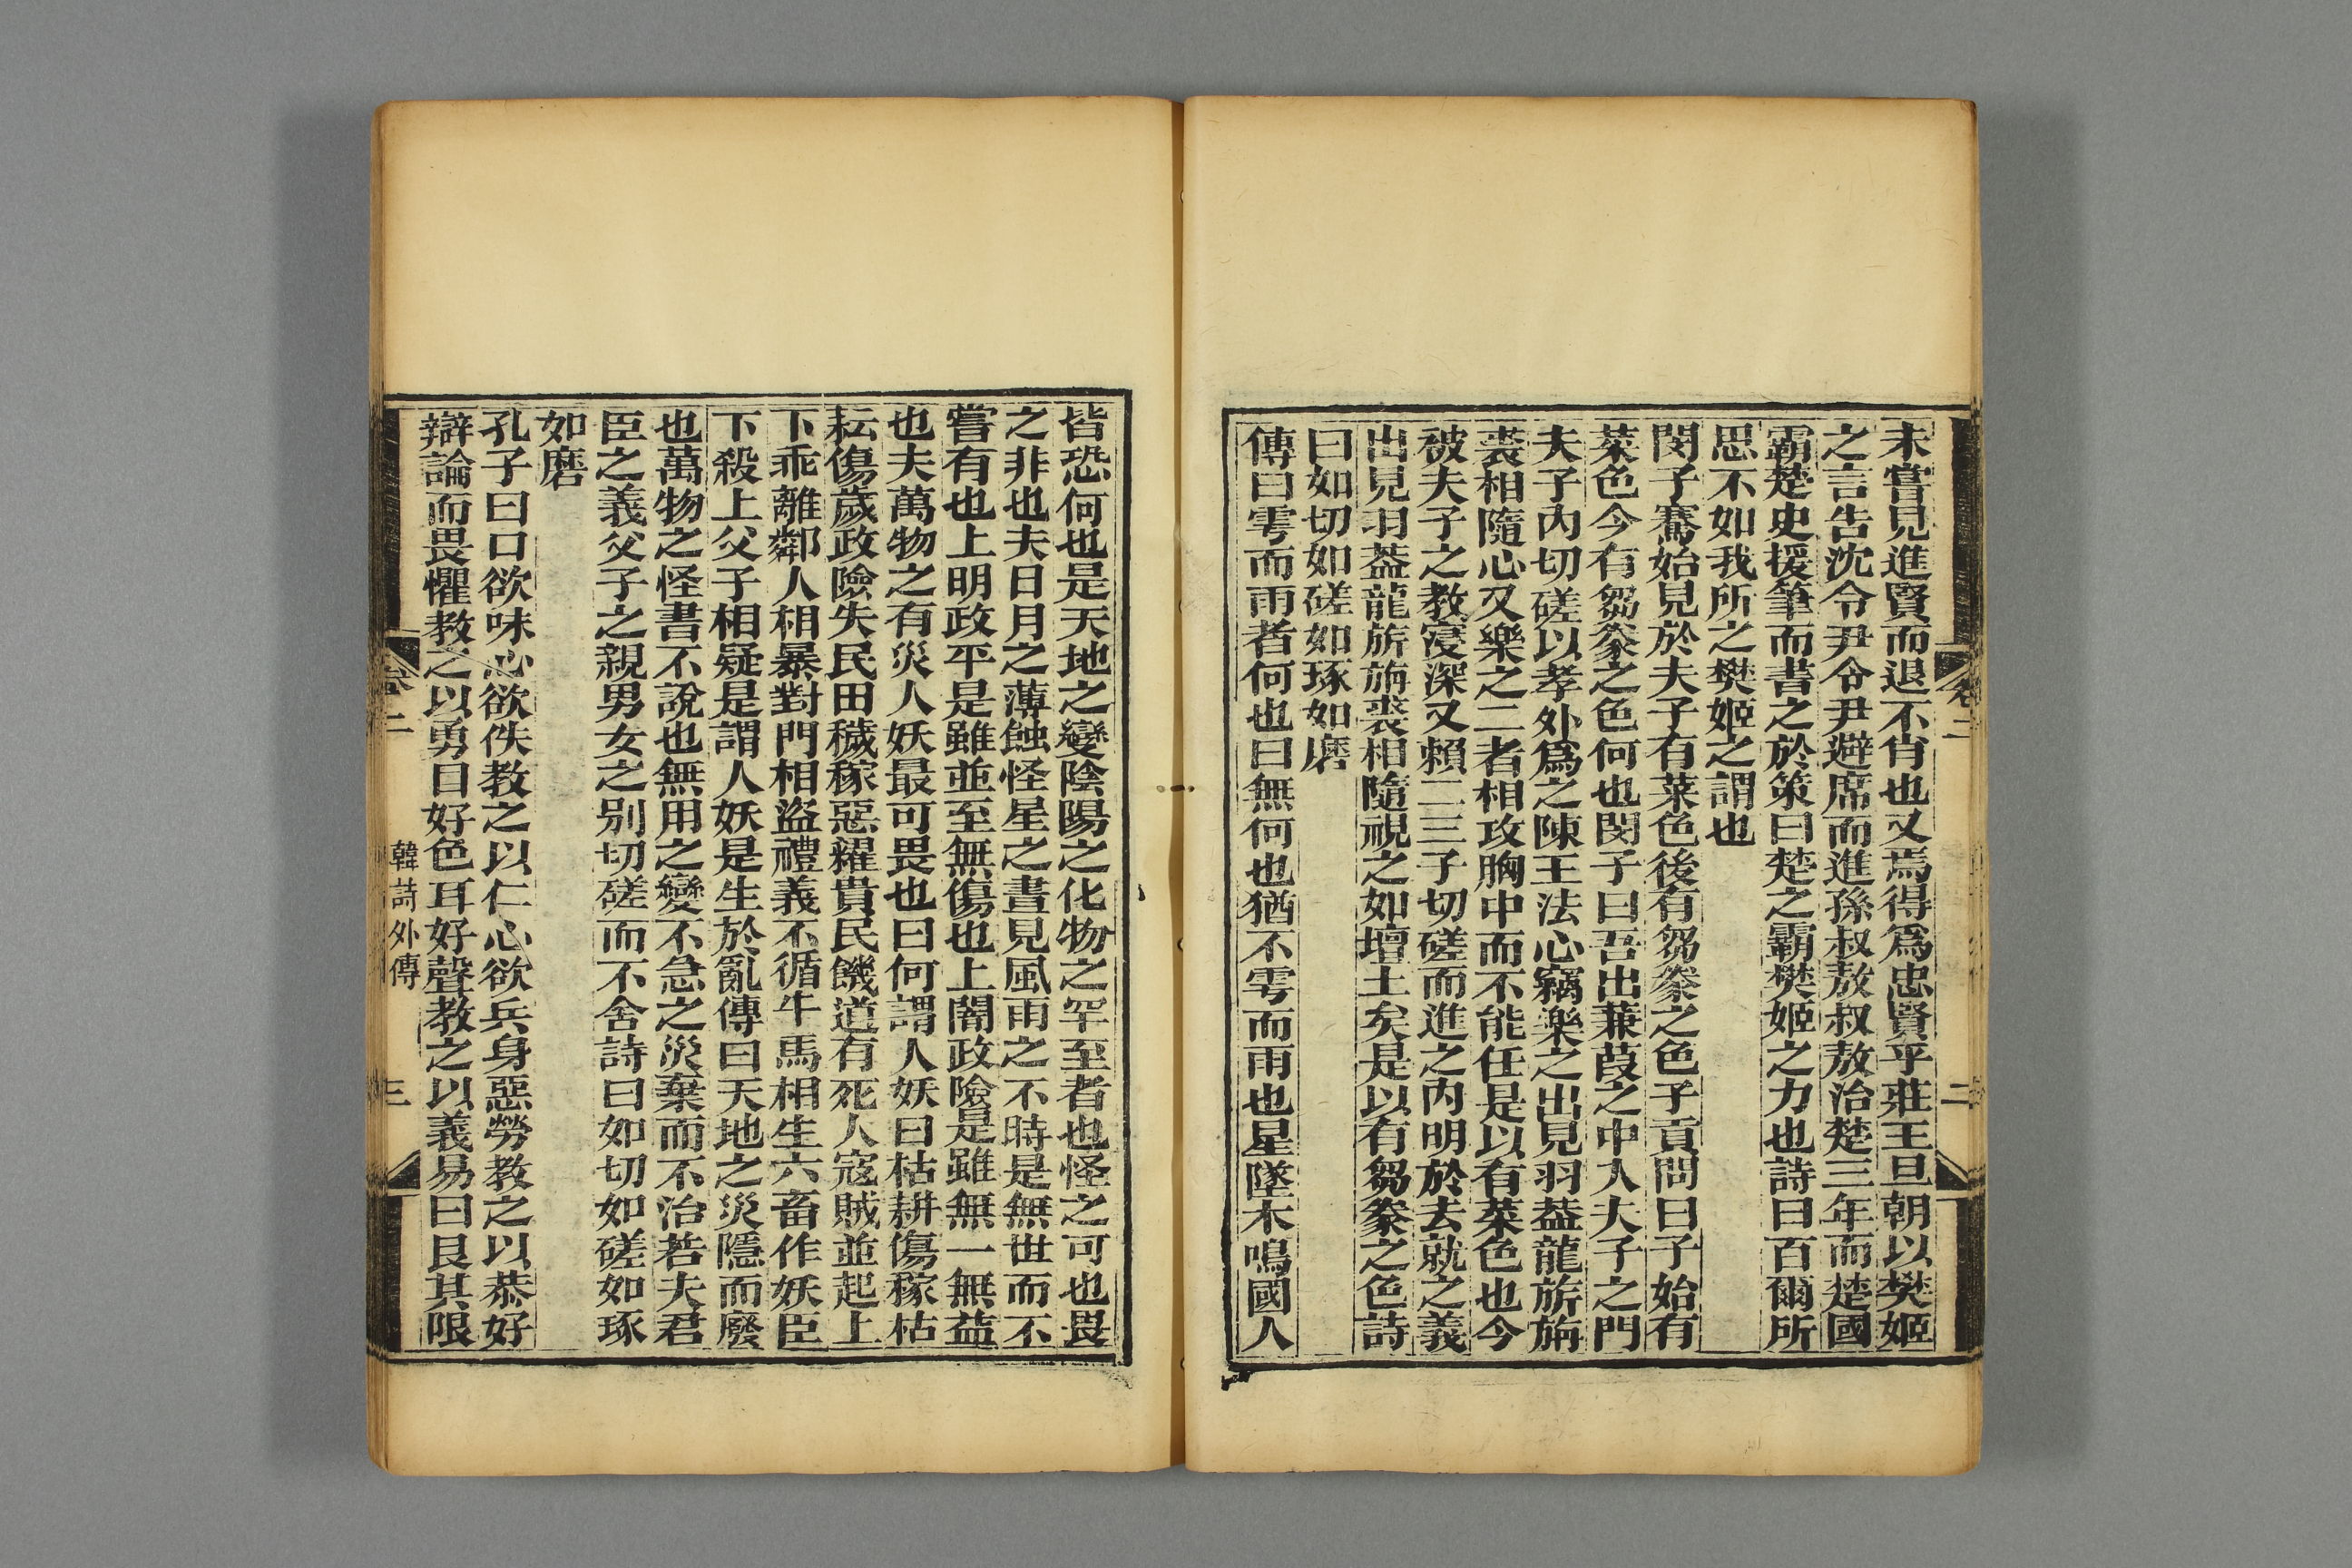 未嘗見進賢而退不肖也又焉得爲忠賢乎莊王旦朝以樊姬
之言告沈令尹令尹避席而進孫叔敖叔敖治楚三年而楚國
霸楚史援筆而書之於策曰楚之霸樊姬之力也詩曰百爾所
思不如我所之樊姬之謂也
閔子騫始見於夫子有菜色後有芻豢之色子貢問曰子始有
菜色今有芻豢之色何也閔子曰吾出蒹葭之中入夫子之門
夫子內切磋以孝外爲之陳王法心竊樂之出見羽葢龍旂旃
裘相隨心又樂之二者相攻胸中而不能任是以有菜色也今
被夫子之教寖深又賴二三子切磋而進之內明於去就之義
出見羽葢龍旂旃裘相隨視之如壇土矣是以有芻豢之色詩
曰如切如磋如琢如磨
傳曰雩而雨者何也曰無何也猶不雩而雨也星墜木鳴國人
卷二
二
皆恐何也是天地之變陰陽之化物之罕至者也怪之可也畏
之非也夫日月之薄蝕怪星之晝見風雨之不時是無世而不
嘗有也上明政平是雖並至無傷也上闇政險是雖無一無益
也夫萬物之有災人妖最可畏也曰何謂人妖曰枯耕傷稼枯
耘傷歲政險失民田穢稼惡糴貴民饑道有死人寇賊並起上
下乖離鄰人相暴對門相盜禮義不循牛馬相生六畜作妖臣
下殺上父子相疑是謂人妖是生於亂傳曰天地之災隱而廢
也萬物之怪書不說也無用之變不急之災棄而不治若夫君
臣之義父子之親男女之別切磋而不舍詩曰如切如磋如琢
如磨
孔子曰口欲味心欲佚教之以仁心欲兵身惡勞教之以恭好
辯論而畏懼教之以勇目好色耳好聲教之以義易曰艮其限
卷二
韓詩外傳
三